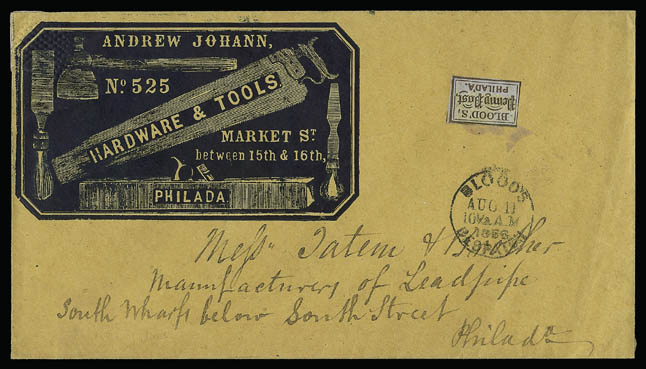 ANDREW JOHANN,
No. 525
HARDWARE & TOOLS
MARKET ST
between 15th & 16th,
PHILADA
BLOOD'S
Penny Post
PHILADA.
BLOOD'S
AUG 11
10½ A.M
1856
Messrs Tatem & Brother
Manufacturers of Leadpipe
South Wharfs below South Street
Philada